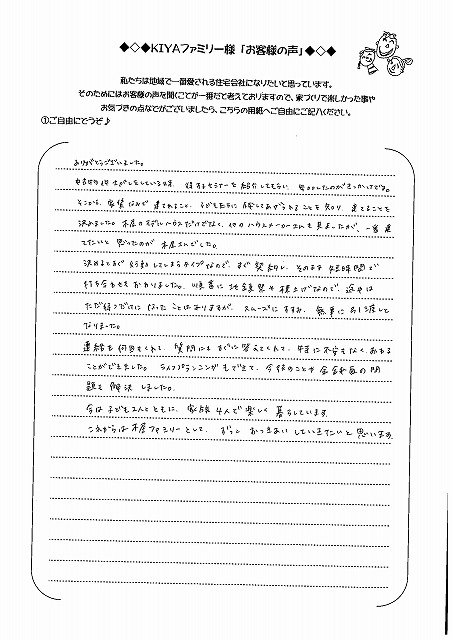 ◆◇◆KIYAファミリー様「お客様の声」◆◇◆
私たちは地域で一番愛される住宅会社になりたいと思っています。
そのためにはお客様の声を聞くことが一番だと考えておりますので、家づくりで楽しかった事や
お気づきの点などがございましたら、こちらの用紙へご自由にご記入ください。
①ご自由にどうぞ♪
ありがとうございました。
中古の土地さがしをしている時、得するセミナーを紹介してもらい、参加したのがきっかけです。
そこから、家賃なみで建てれること、子ども達に残してあげられることを知り、建てることを
決めました。木屋のモデルハウスだけでなく、他のハウスメーカーさんも見ましたが、一番建
てたいと思ったのが木屋さんでした。
決めるとすぐ行動してしまうタイプなので、すぐ契約し、そのまま短時間で
打ち合わせもおわりました。
ただ待つだけになったことはありますが、スムーズにすすみ、無事にお引き渡しと
なりました。
連絡も何度もくれて、質問にもすぐに答えてくれて、特に不安もなく
ことができました。ライフプランニングもできて、今後のことや金銭面の問
題も解決しました。
今は子ども2人とともに、家族4人で楽しく暮らしています。
これからは木屋ファミリーとして、ずっとおつきあいしていきたいと思います。